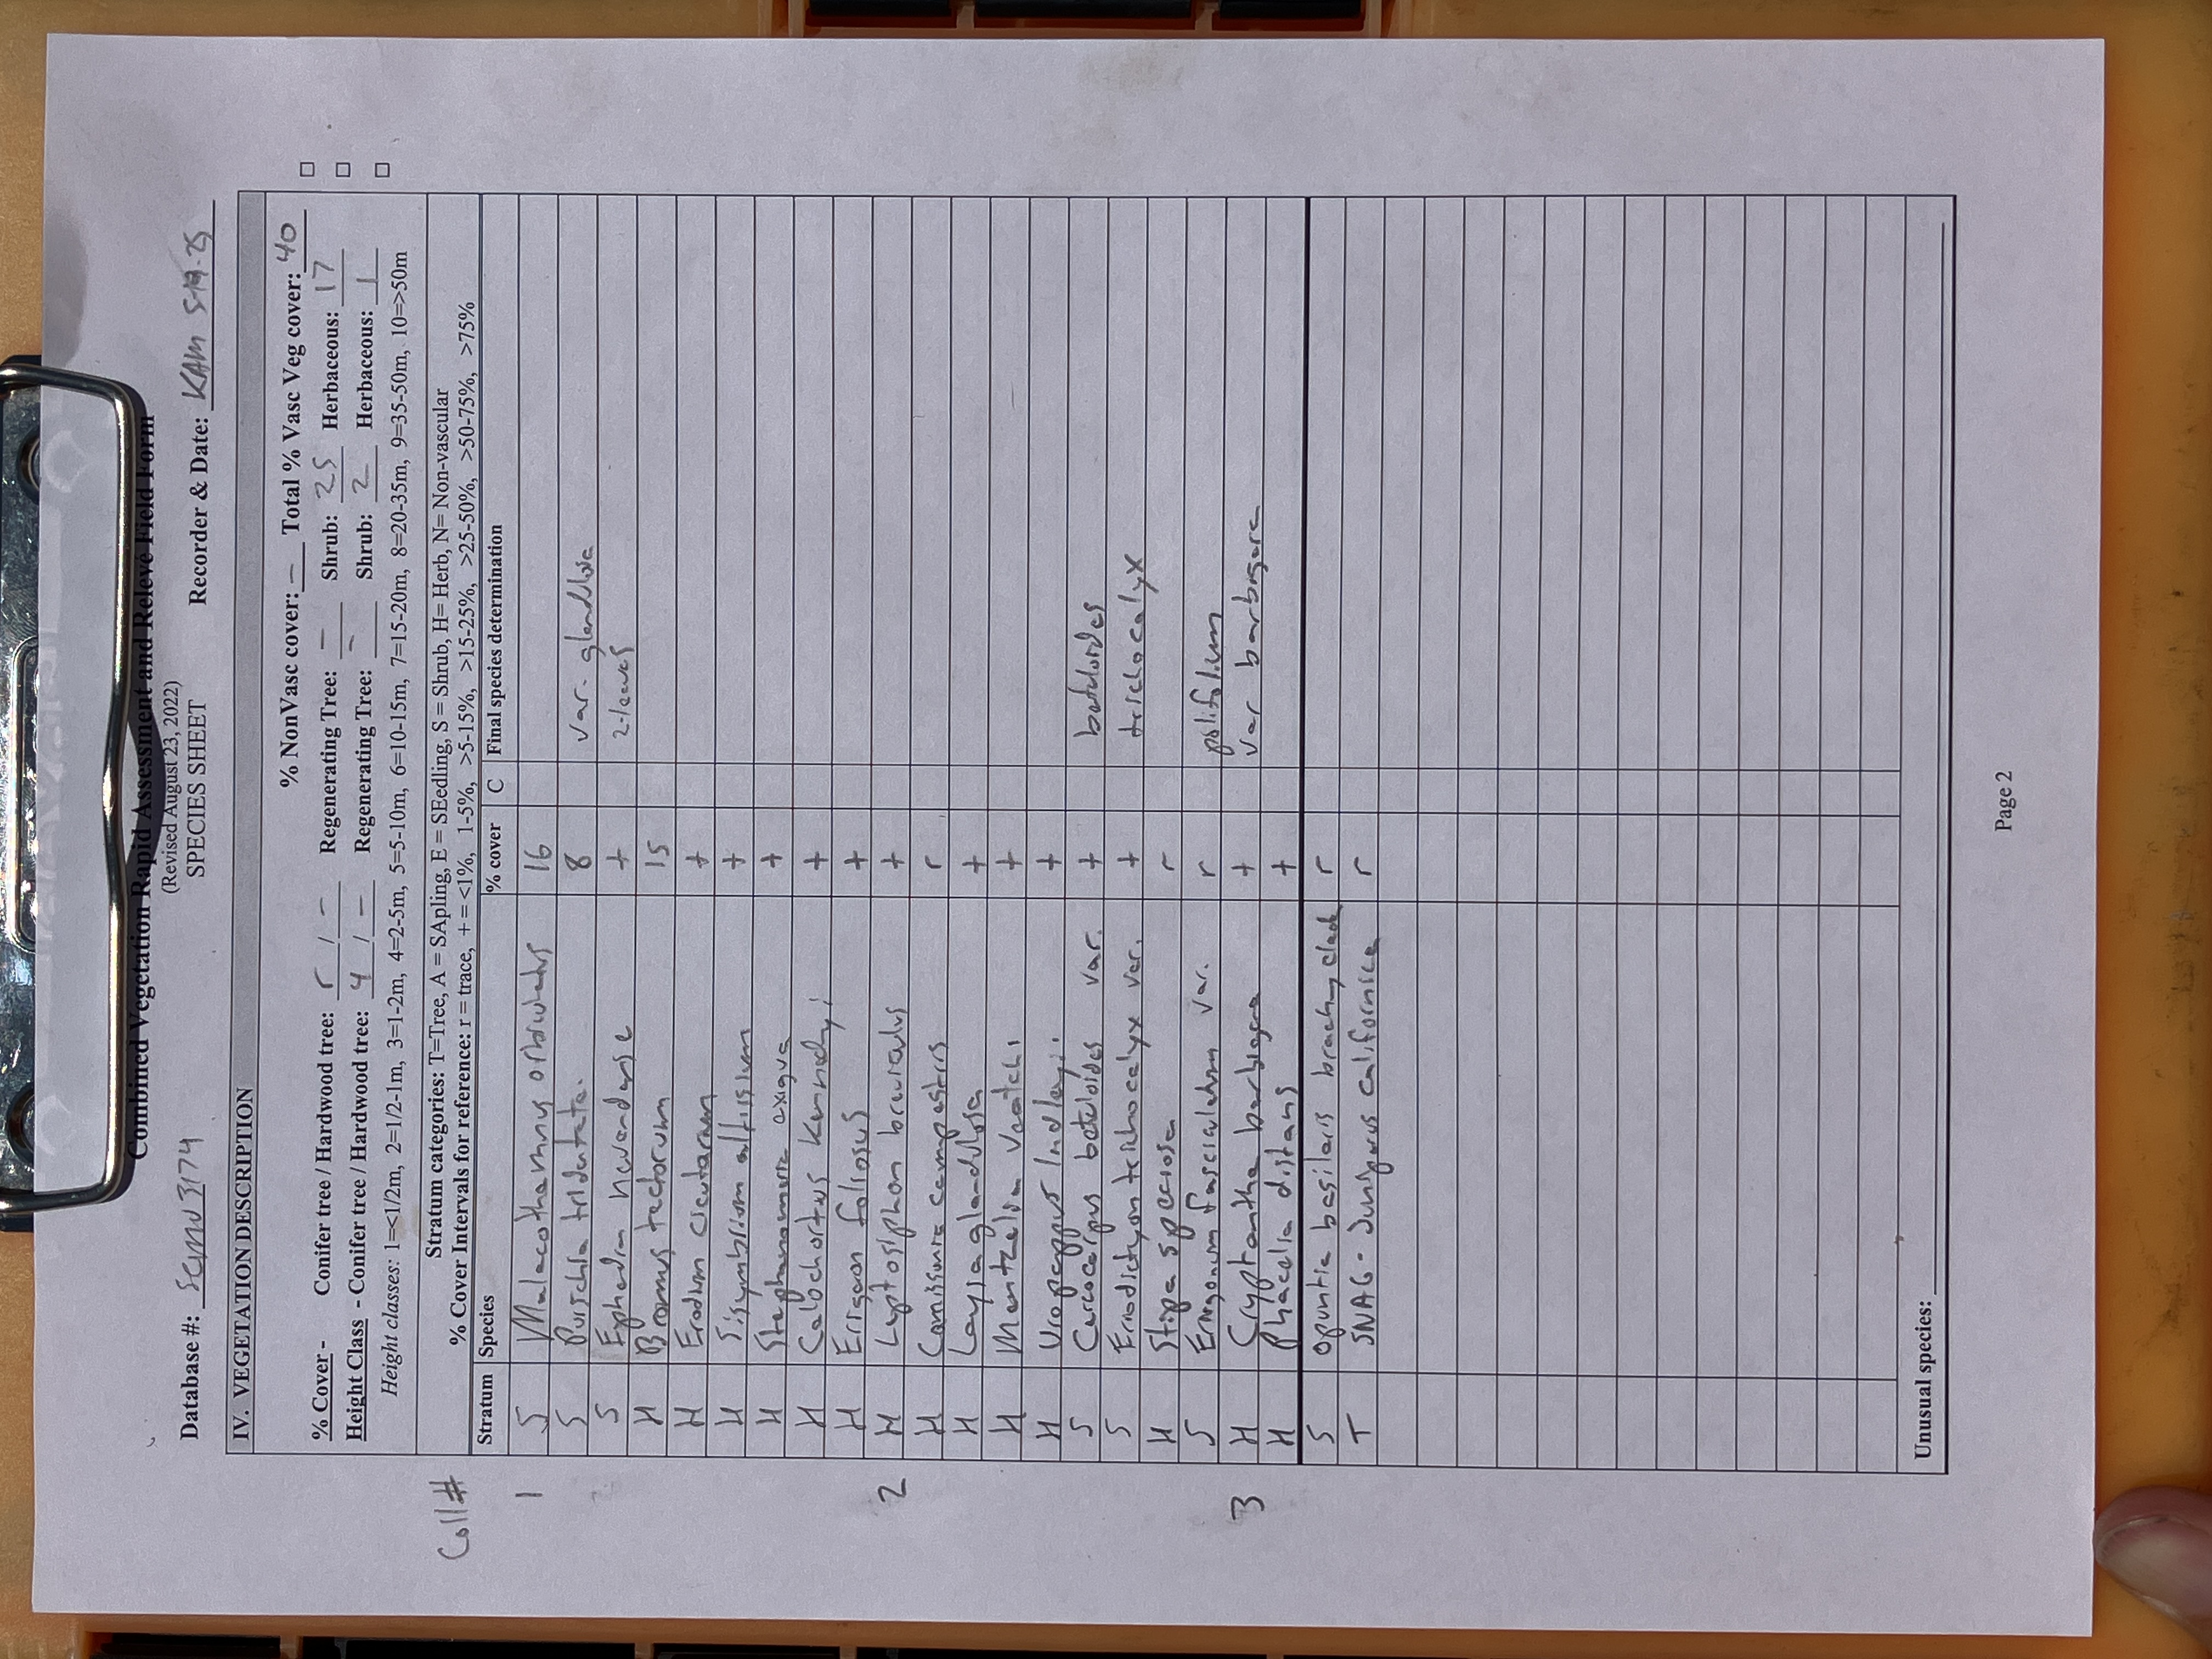 Combined Vegetation Rapid Assessment and Relevé Field Form
(Revised August 23, 2022)
SPECIES SHEET
Database #: Recorder & Date: KAM
IV. VEGETATION DESCRIPTION
% NonVasc cover: – Total % Vasc Veg cover: 40
% Cover - Conifer tree / Hardwood tree: r / – Regenerating Tree: – Shrub: 25 Herbaceous: 17
Height Class - Conifer tree / Hardwood tree: 4 / – Regenerating Tree: – Shrub: 2 Herbaceous: 1
Height classes: 1=<1/2m, 2=1/2-1m, 3=1-2m, 4=2-5m, 5=5-10m, 6=10-15m, 7=15-20m, 8=20-35m, 9=35-50m, 10=>50m
Stratum categories: T=Tree, A = SApling, E = SEedling, S = Shrub, H= Herb, N= Non-vascular
% Cover Intervals for reference: r = trace, + = <1%, 1-5%, >5-15%, >15-25%, >25-50%, >50-75%, >75%
Coll#
Stratum Species % cover C Final species determination
1 S Malacothamnus orbiculatus 16
S Purschia tridentata 8 var. glandulosa
S Ephedra nevadensis + 2-leaves
H Bromus tectorum 15
H Erodium cicutarium +
H Sisymbrium altissium +
H Stephanomeria exigua +
H Calochortus kennedyi +
H Erigeron foliosus +
2 H Leptosiphon breviculus +
H Camissonia campestris r
H Layia glandulosa +
H Mentzelia veatchi +
H Uropappus lindleyi +
S Cercocarpus betuloides var. + betuloides
S Eriodictyon trichocalyx var. + trichocalyx
H Stipa speciosa r
S Eriogonum fasciculatum var. r polifolium
3 H Cryptantha barbigera + var barbigera
H Phacelia distans +
S Opuntia basilaris brachyclada r
T SNAG - Juniperus californica r
Unusual species:
Page 2